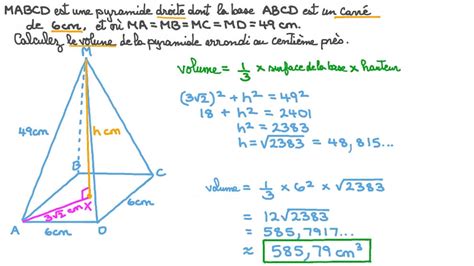 MABCD est une pyramide droite dont la base ABCD est un carré
de 6cm, et où MA = MB = MC = MD = 49 cm.
Calculez le volume de la pyramide arrondi au centième près.
volume = 1/3 × surface de la base × hauteur
(3√2)² + h² = 49²
18 + h² = 2401
h² = 2383
h = √2383 = 48,815...
M
49cm
h cm
B
C
3√2 cm
X
6cm
A
6cm
D
volume = 1/3 × 6² × √2383
= 12√2383
= 585,7917...
≈ 585,79 cm³